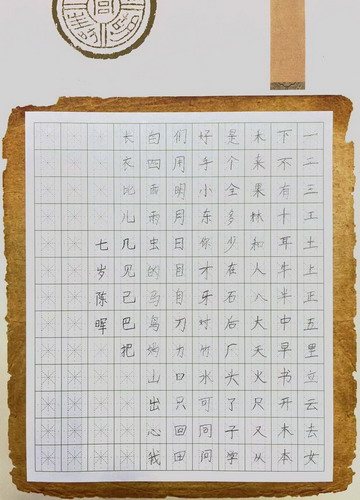 一二三工土上正五里立云去女
下不有十耳牛半中早书开木本
来果林和人八大天火尺又从
是个全多少在石后厂头了子学
好手小东你才牙对竹水可同问
们用明月日目自刀力口只回田
白四雨虫的马鸟山出心我
长衣比儿几见己巴把
七岁陈晖